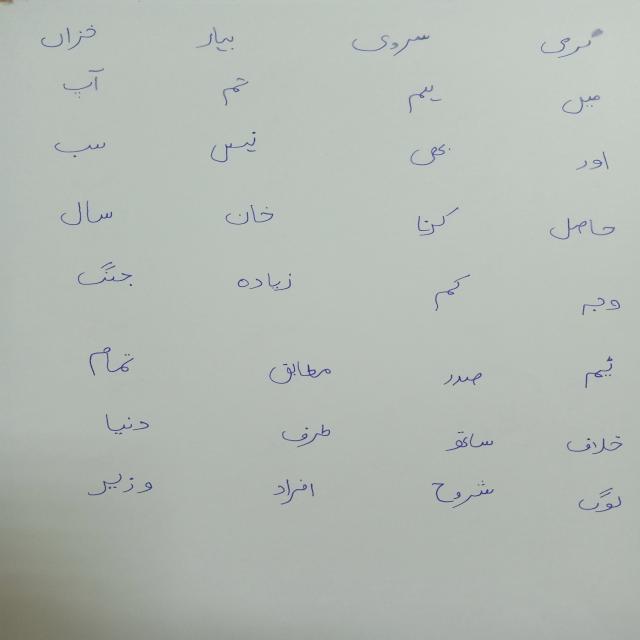 گرمی سردی بہار خزاں
میں ہم تم آپ
اور بھی نہیں سب
حاصل کرنا خان سال
وجہ کم زیادہ جنگ
ٹیم صدر مطابق تمام
خلاف ساتھ طرف دنیا
لوگ شروع افراد وزیر